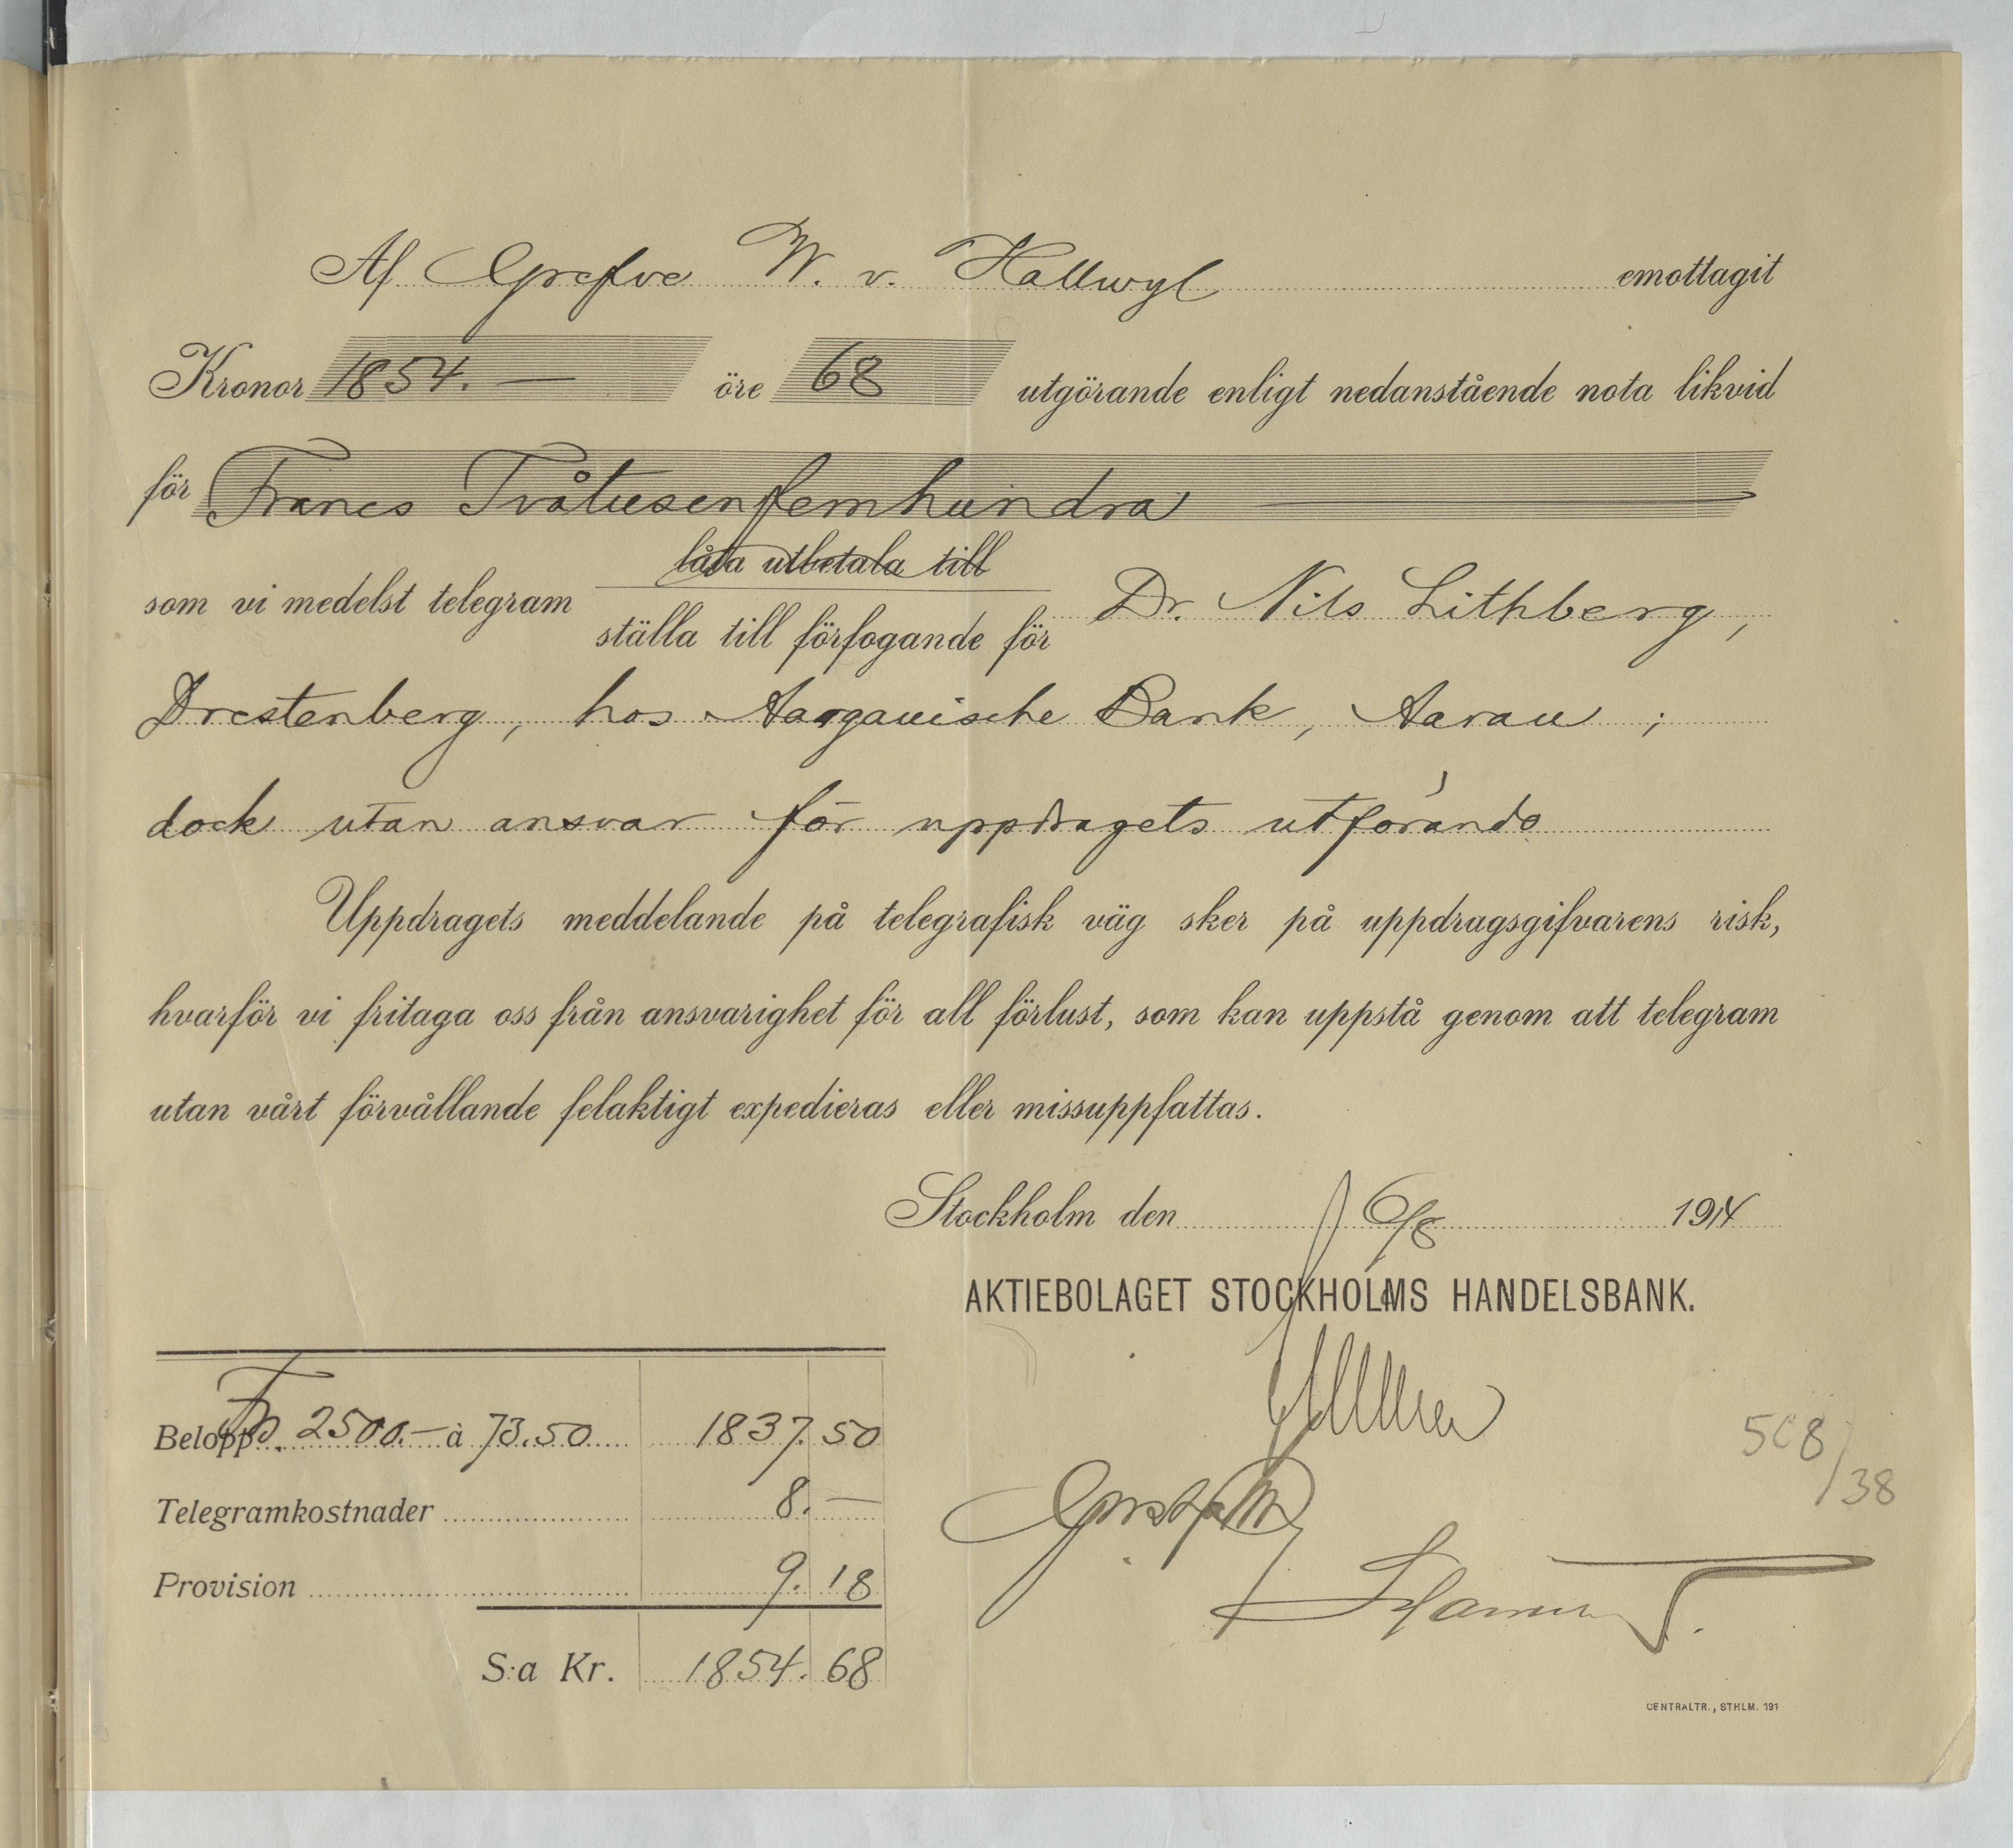 Af Grefve W. v. Hallwyl emottagit
Kronor 1854. — öre 68 utgörande enligt nedanstående nota likvid
för Francs Tvåtusenfemhundra —
låta utbetala till
som vi medelst telegram ställa till förfogande för Dr. Nils Lithberg,
Brestenberg, hos Aargauische Bank, Aarau;
dock utan ansvar för uppdragets utförande
Uppdragets meddelande på telegrafisk väg sker på uppdragsgifvarens risk,
hvarför vi fritaga oss från ansvarighet för all förlust, som kan uppstå genom att telegram
utan vårt förvållande felaktigt expedieras eller missuppfattas.
Stockholm den 6/8 1914
AKTIEBOLAGET STOCKHOLMS HANDELSBANK.
Belopp Frs. 2500.— à 73.50 1837.50
Telegramkostnader 8.—
Provision 9.18
S:a Kr. 1854.68
508/38
CENTRALTR., STHLM. 191